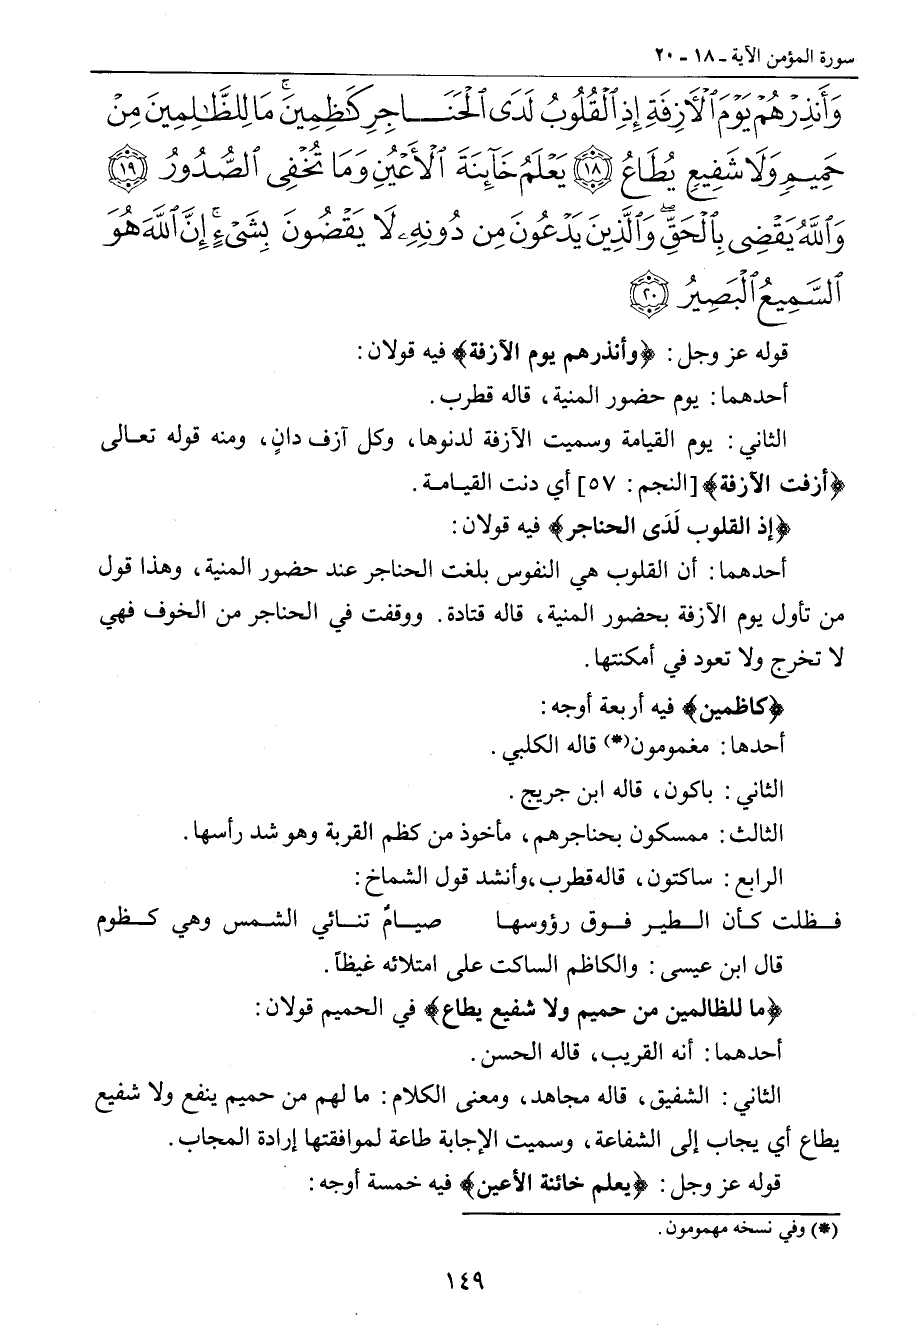 سورة المؤمن الآية ـ ١٨ ـ ٢٠
وَأَنذِرْهُمْ يَوْمَ ٱلْأَزِفَةِ إِذِ ٱلْقُلُوبُ لَدَى ٱلْحَنَاجِرِ كَٰظِمِينَ ۚ مَا لِلظَّٰلِمِينَ مِنْ
حَمِيمٍ وَلَا شَفِيعٍ يُطَاعُ ﴿١٨﴾ يَعْلَمُ خَآئِنَةَ ٱلْأَعْيُنِ وَمَا تُخْفِى ٱلصُّدُورُ ﴿١٩﴾
وَٱللَّهُ يَقْضِى بِٱلْحَقِّ ۖ وَٱلَّذِينَ يَدْعُونَ مِن دُونِهِۦ لَا يَقْضُونَ بِشَىْءٍ ۗ إِنَّ ٱللَّهَ هُوَ
ٱلسَّمِيعُ ٱلْبَصِيرُ ﴿٢٠﴾
قوله عز وجل: ﴿وأنذرهم يوم الآزفة﴾ فيه قولان:
أحدهما: يوم حضور المنية، قاله قطرب.
الثاني: يوم القيامة وسميت الآزفة لدنوها، وكل آزف دانٍ، ومنه قوله تعالى
﴿أزفت الآزفة﴾ [النجم: ٥٧] أي دنت القيامة.
﴿إذ القلوب لَدَى الحناجر﴾ فيه قولان:
أحدهما: أن القلوب هي النفوس بلغت الحناجر عند حضور المنية، وهذا قول
من تأول يوم الآزفة بحضور المنية، قاله قتادة. ووقفت في الحناجر من الخوف فهي
لا تخرج ولا تعود في أمكنتها.
﴿كاظمين﴾ فيه أربعة أوجه:
أحدها: مغمومون(*) قاله الكلبي.
الثاني: باكون، قاله ابن جريج.
الثالث: ممسكون بحناجرهم، مأخوذ من كظم القربة وهو شد رأسها.
الرابع: ساكتون، قاله قطرب، وأنشد قول الشماخ:
فظلت كأن الطير فوق رؤوسها صيامٌ تنائي الشمس وهي كظوم
قال ابن عيسى: والكاظم الساكت على امتلائه غيظاً.
﴿ما للظالمين من حميم ولا شفيع يطاع﴾ في الحميم قولان:
أحدهما: أنه القريب، قاله الحسن.
الثاني: الشفيق، قاله مجاهد، ومعنى الكلام: ما لهم من حميم ينفع ولا شفيع
يطاع أي يجاب إلى الشفاعة، وسميت الإجابة طاعة لموافقتها إرادة المجاب.
قوله عز وجل: ﴿يعلم خائنة الأعين﴾ فيه خمسة أوجه:
(*) وفي نسخه مهمومون.
١٤٩